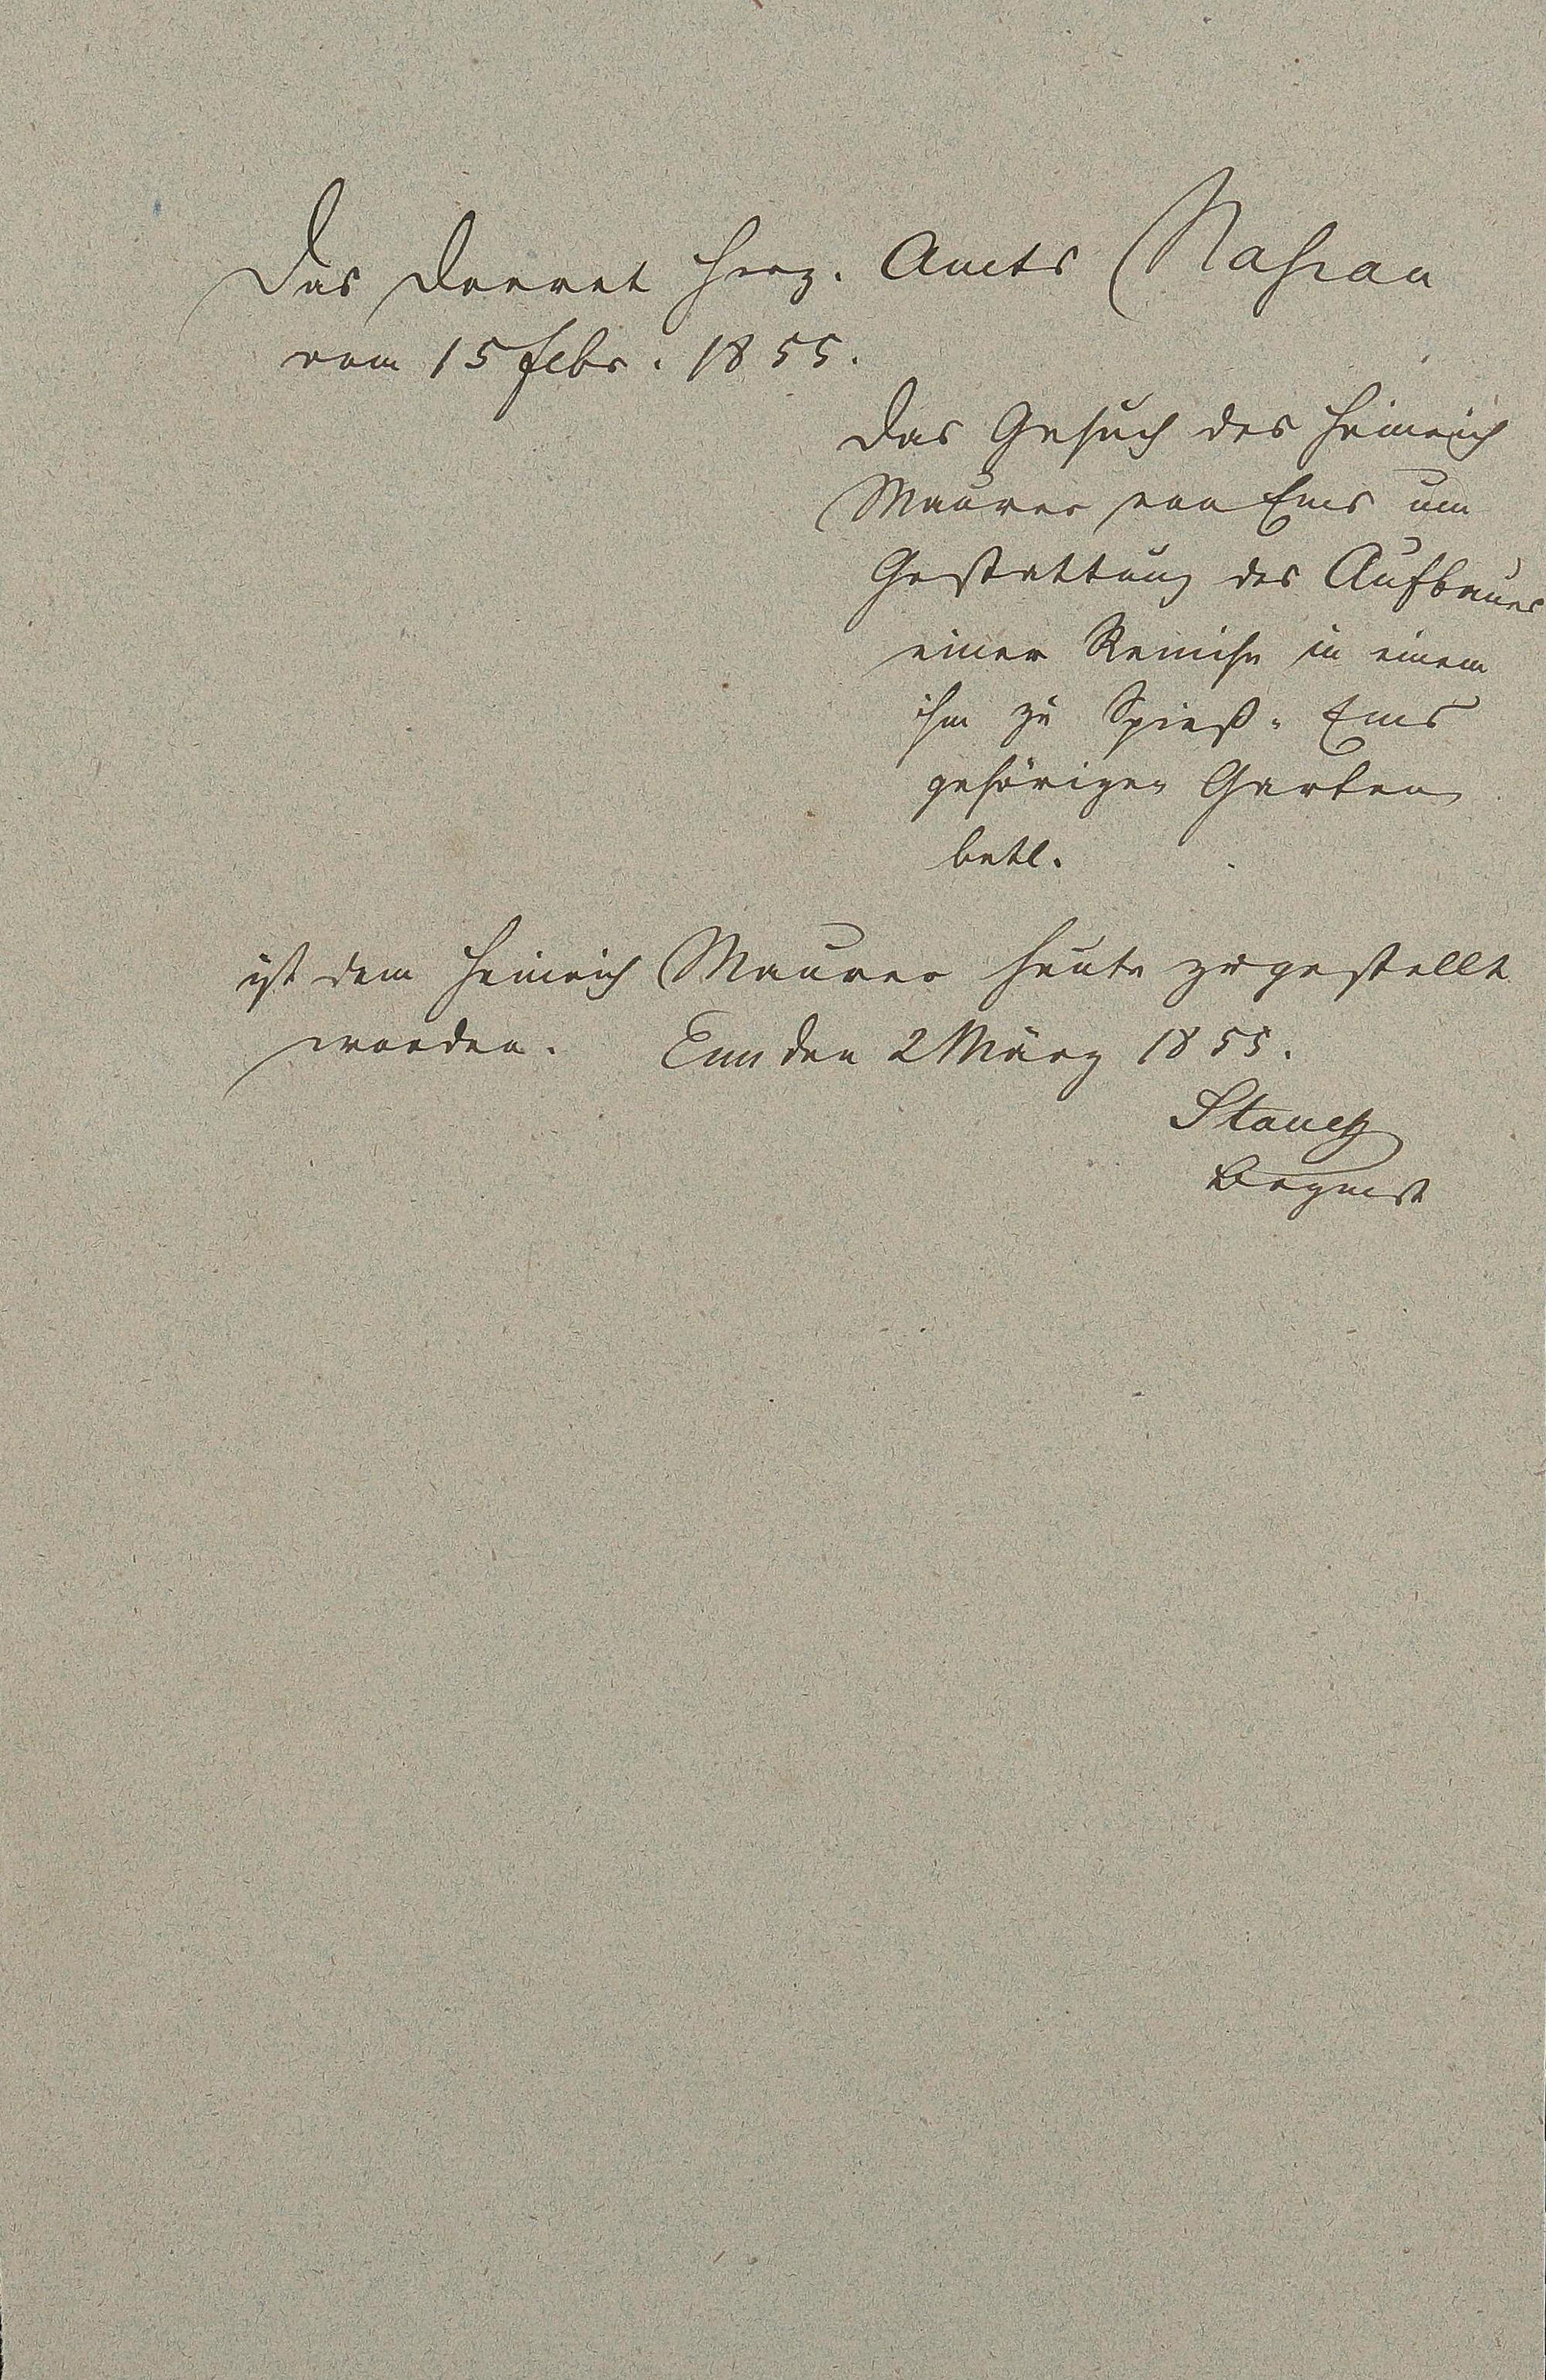 Das Decret Herz. Amts Nassau
vom 15 Febr. 1855.
Das Gesuch des Heinrich
Maurer von Ems um
Gestattung des Aufbaues
einer Remise in einem
ihm zu Spieß-Ems
gehörigen Garten
betl.
ist dem Heinrich Maurer heute zugestellt
worden. Ems den 2 März 1855.
Bgrmst